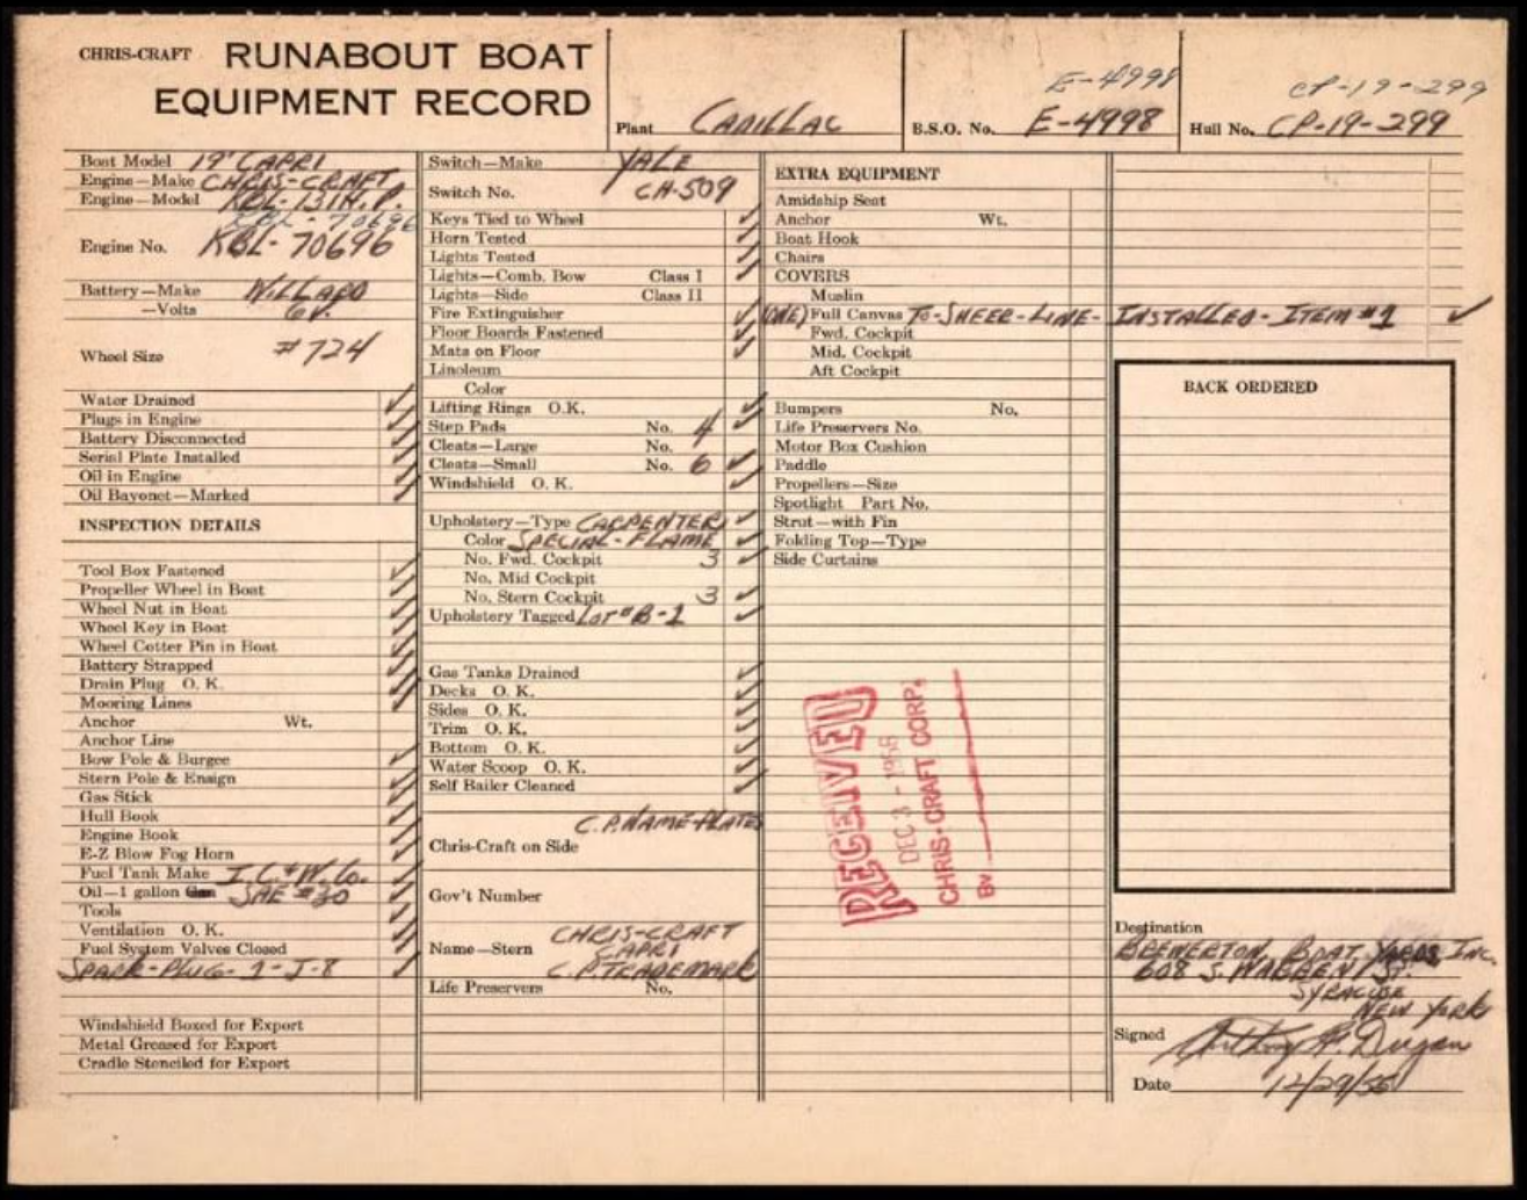 CHRIS-CRAFT RUNABOUT BOAT
EQUIPMENT RECORD
Plant CADILLAC
E-4998
B.S.O. No. E-4998
CP-19-299
Hull No. CP-19-299
Boat Model 19' CAPRI
Engine—Make CHRIS-CRAFT
Engine—Model KBL-131H.P.
KBL-70696
Engine No. KBL-70696
Battery—Make WILLARD
—Volts 6V.
Wheel Size #724
Water Drained ✓
Plugs in Engine ✓
Battery Disconnected ✓
Serial Plate Installed ✓
Oil in Engine ✓
Oil Bayonet—Marked ✓
INSPECTION DETAILS
Tool Box Fastened ✓
Propeller Wheel in Boat ✓
Wheel Nut in Boat ✓
Wheel Key in Boat ✓
Wheel Cotter Pin in Boat ✓
Battery Strapped ✓
Drain Plug O. K. ✓
Mooring Lines ✓
Anchor Wt.
Anchor Line
Bow Pole & Burgee ✓
Stern Pole & Ensign ✓
Gas Stick ✓
Hull Book ✓
Engine Book ✓
E-Z Blow Fog Horn ✓
Fuel Tank Make I.C.&W.Co. ✓
Oil—1 gallon SAE #30 ✓
Tools ✓
Ventilation O. K. ✓
Fuel System Valves Closed ✓
SPARK-PLUG-1-J-8 ✓
Windshield Boxed for Export
Metal Greased for Export
Cradle Stenciled for Export
Switch—Make YALE
Switch No. CH-509
Keys Tied to Wheel ✓
Horn Tested ✓
Lights Tested ✓
Lights—Comb. Bow Class I ✓
Lights—Side Class II
Fire Extinguisher ✓
Floor Boards Fastened ✓
Mats on Floor ✓
Linoleum
Color
Lifting Rings O.K. ✓
Step Pads No. 4 ✓
Cleats—Large No.
Cleats—Small No. 6 ✓
Windshield O. K. ✓
Upholstery—Type CARPENTER ✓
Color SPECIAL-FLAME ✓
No. Fwd. Cockpit 3 ✓
No. Mid Cockpit
No. Stern Cockpit 3 ✓
Upholstery Tagged LOT # B-1 ✓
Gas Tanks Drained ✓
Decks O. K. ✓
Sides O. K. ✓
Trim O. K. ✓
Bottom O. K. ✓
Water Scoop O. K. ✓
Self Bailer Cleaned ✓
C.P. NAME-PLATES
Chris-Craft on Side
Gov't Number
CHRIS-CRAFT
Name—Stern CAPRI
C.P. TRADEMARK
Life Preservers No.
EXTRA EQUIPMENT
Amidship Seat
Anchor Wt.
Boat Hook
Chairs
COVERS
Muslin
(ONE) Full Canvas TO-SHEER-LINE-INSTALLED-ITEM #1 ✓
Fwd. Cockpit
Mid. Cockpit
Aft Cockpit
Bumpers No.
Life Preservers No.
Motor Box Cushion
Paddle
Propellers—Size
Spotlight Part No.
Strut—with Fin
Folding Top—Type
Side Curtains
RECEIVED
DEC 3 - 1956
CHRIS-CRAFT CORP.
BY
BACK ORDERED
Destination
BREWERTON BOAT YARDS INC.
608 S. WARREN ST.
SYRACUSE
NEW YORK
Signed
Date 12/29/55